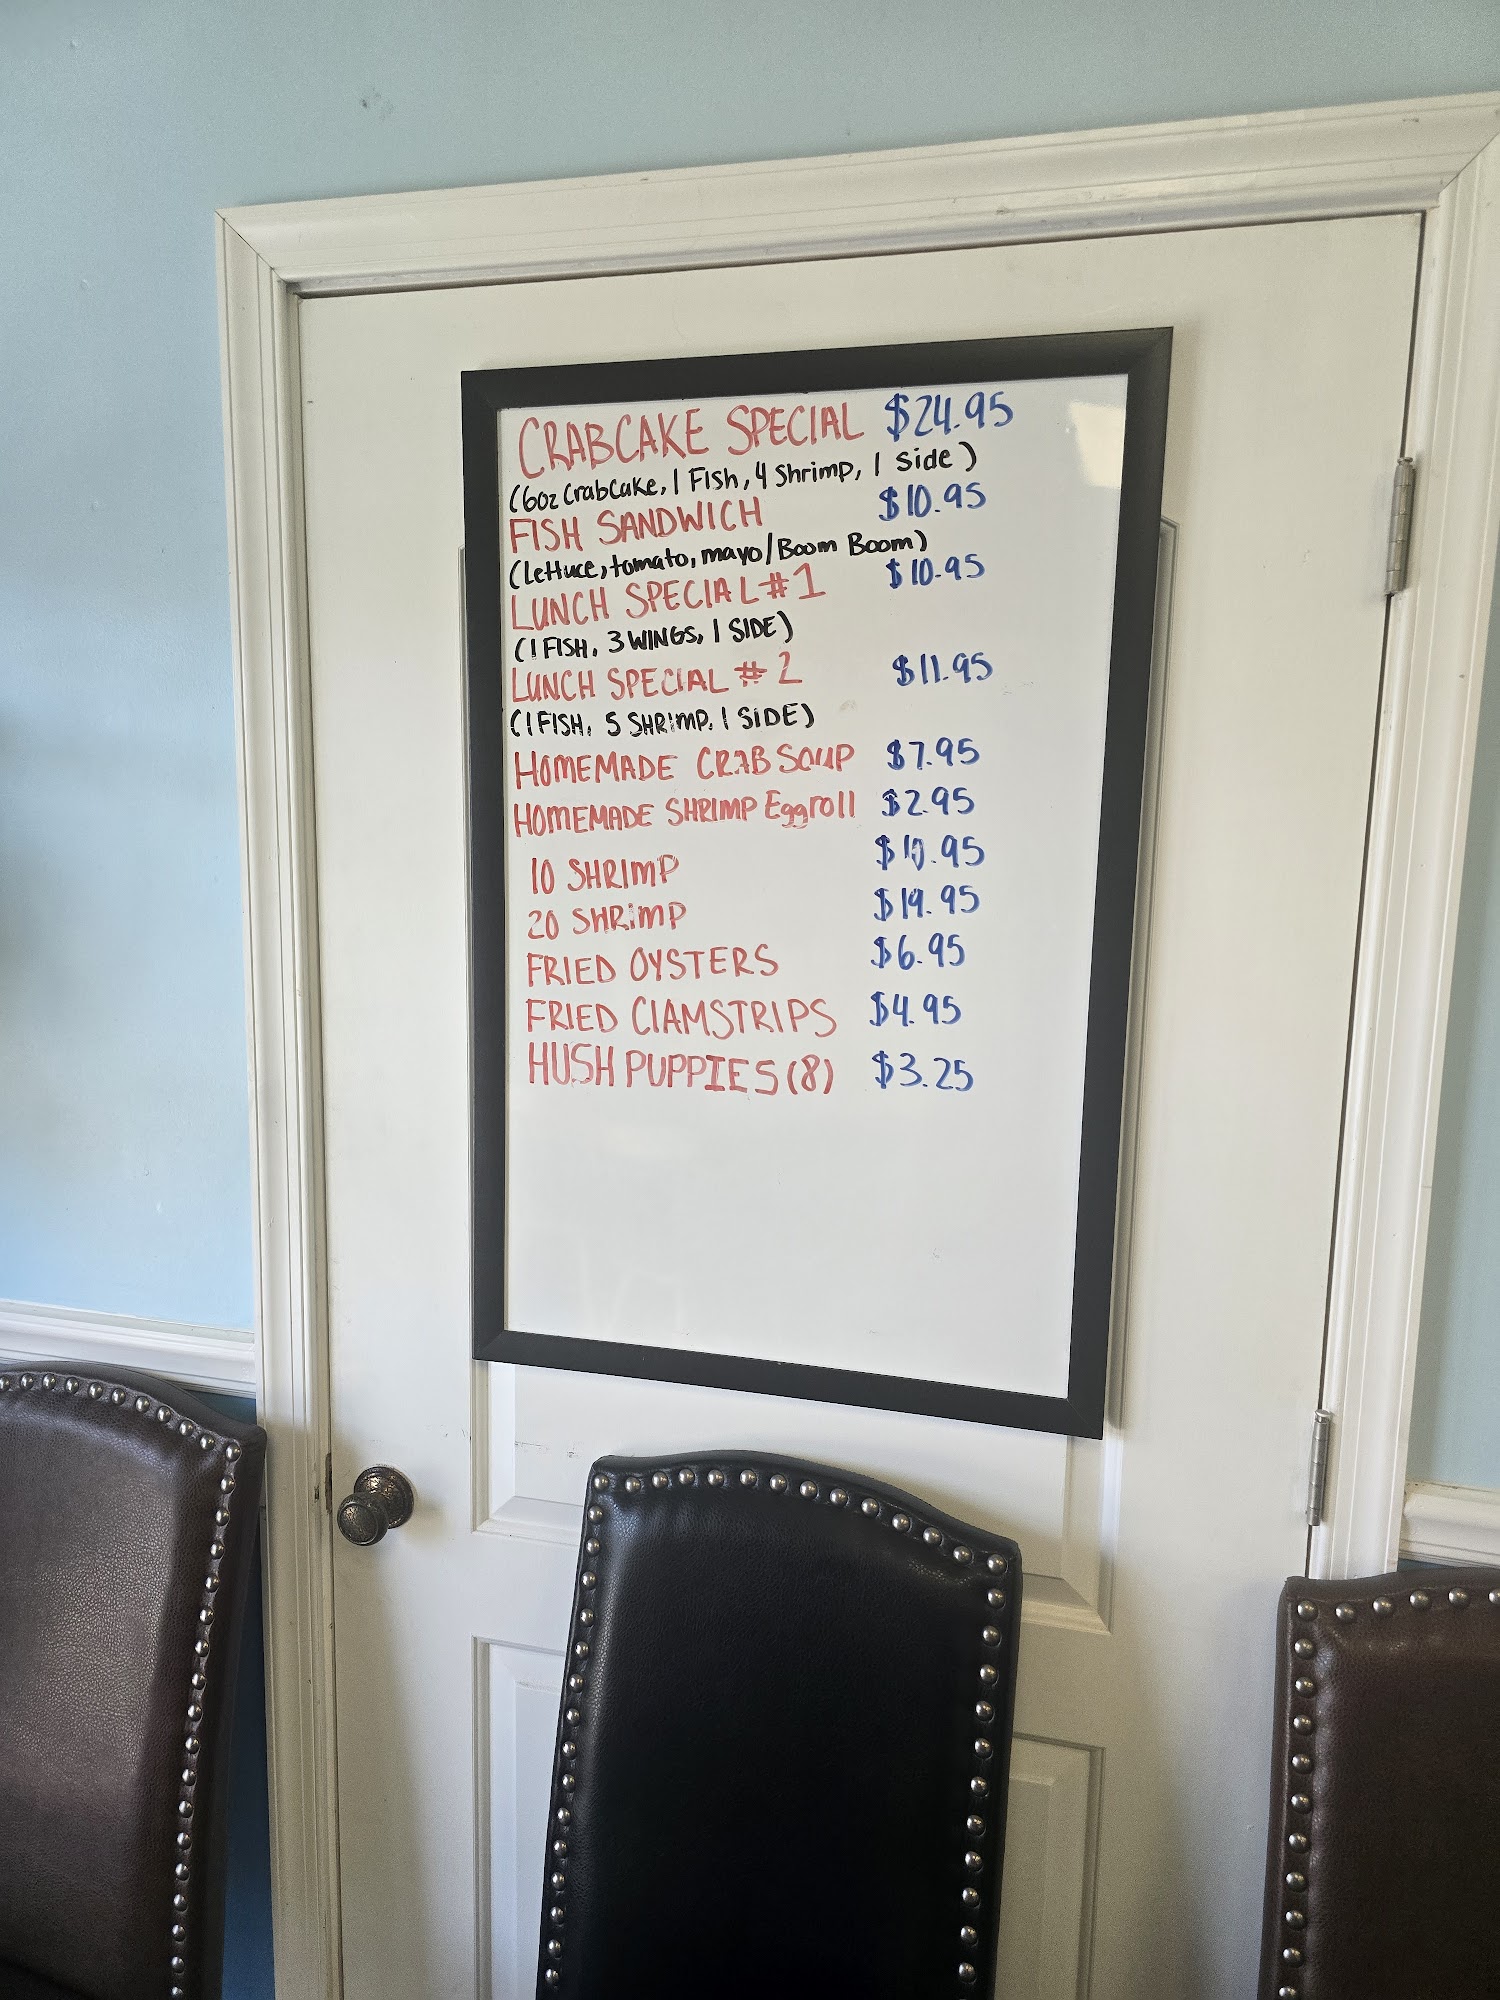 CRABCAKE SPECIAL $24.95
(6oz Crabcake, 1 Fish, 4 Shrimp, 1 Side)
FISH SANDWICH $10.95
(Lettuce, tomato, mayo/Boom Boom)
LUNCH SPECIAL #1 $10.95
(1 FISH, 3 WINGS, 1 SIDE)
LUNCH SPECIAL #2 $11.95
(1 FISH, 5 SHRIMP, 1 SIDE)
HOMEMADE CRAB SOUP $7.95
HOMEMADE SHRIMP Eggroll $2.95
10 SHRIMP $10.95
20 SHRIMP $19.95
FRIED OYSTERS $6.95
FRIED ClAMSTRIPS $4.95
HUSH PUPPIES (8) $3.25